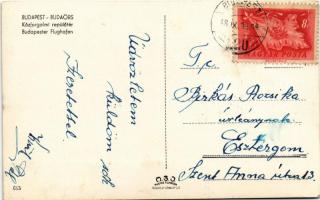 BUDAPEST - BUDAÖRS
Közforgalmi repülőtér
Budapester Flughafen
Üdvözletem
küldöm sok
szeretettel
MAGYAR POSTA
T. c.
Birkás Rozsika
úrleánynak
Esztergom
Szent Anna utca 13.